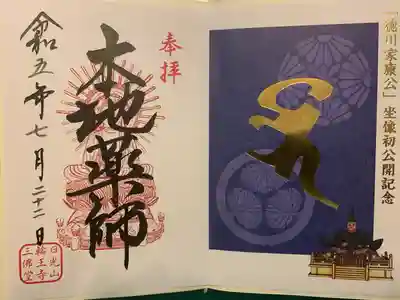 「徳川家康公」坐像初公開記念
奉拝
本地薬師
令和五年七月二十二日
日光山
輪王寺
三佛堂